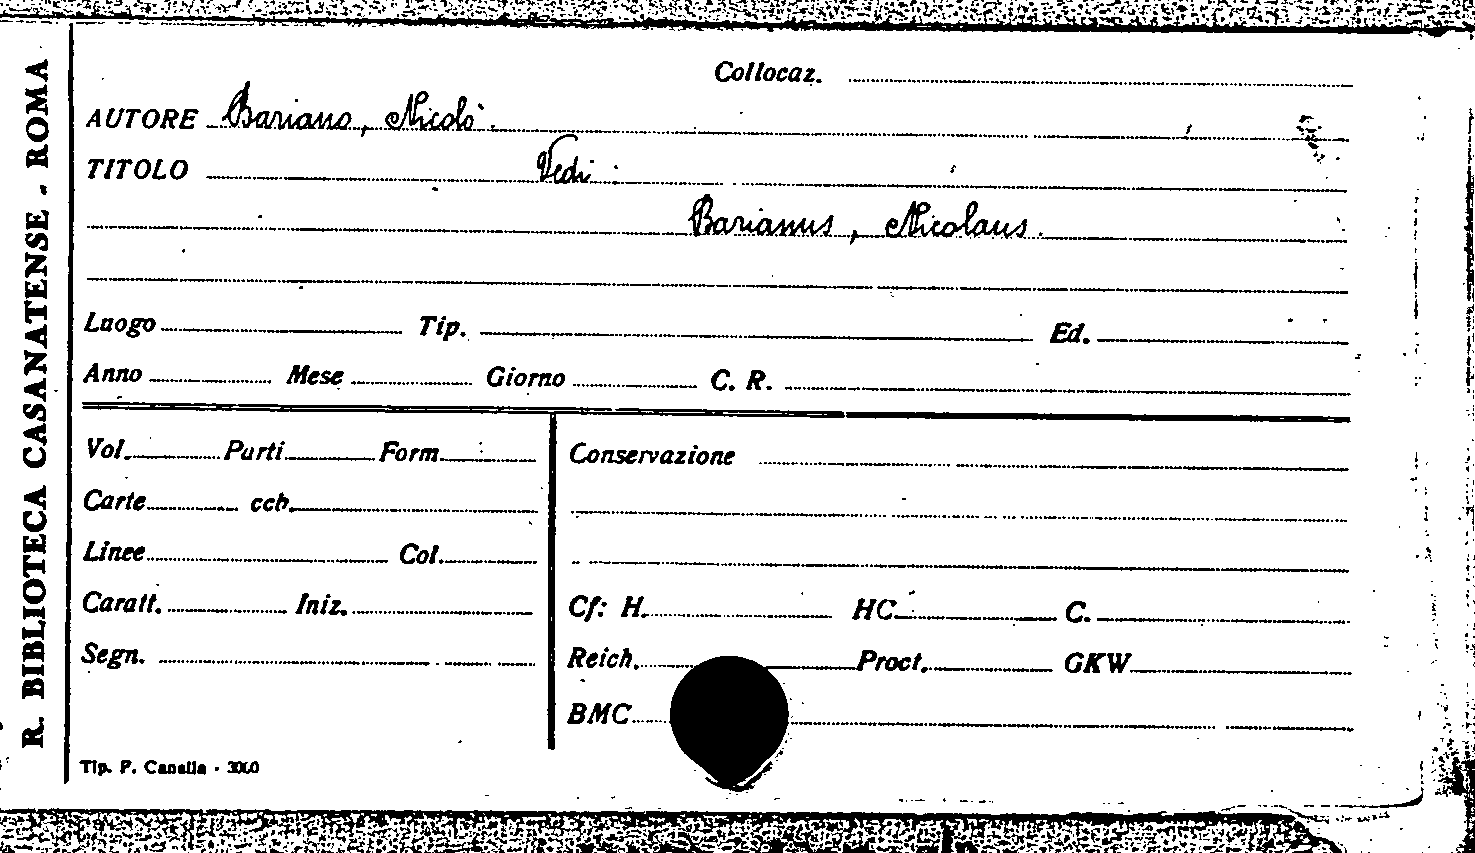 R. BIBLIOTECA CASANATENSE - ROMA
Collocaz.
AUTORE Bariano, Nicolò.
TITOLO Vedi
Barianus, Nicolaus.
Luogo Tip. Ed.
Anno Mese Giorno C. R.
Vol. Parti Form.
Conservazione
Carte ccb.
Linee Col.
Caratt. Iniz.
Cf: H. HC. C.
Segn.
Reich. Proct. GKW
BMC
Tip. F. Canella -